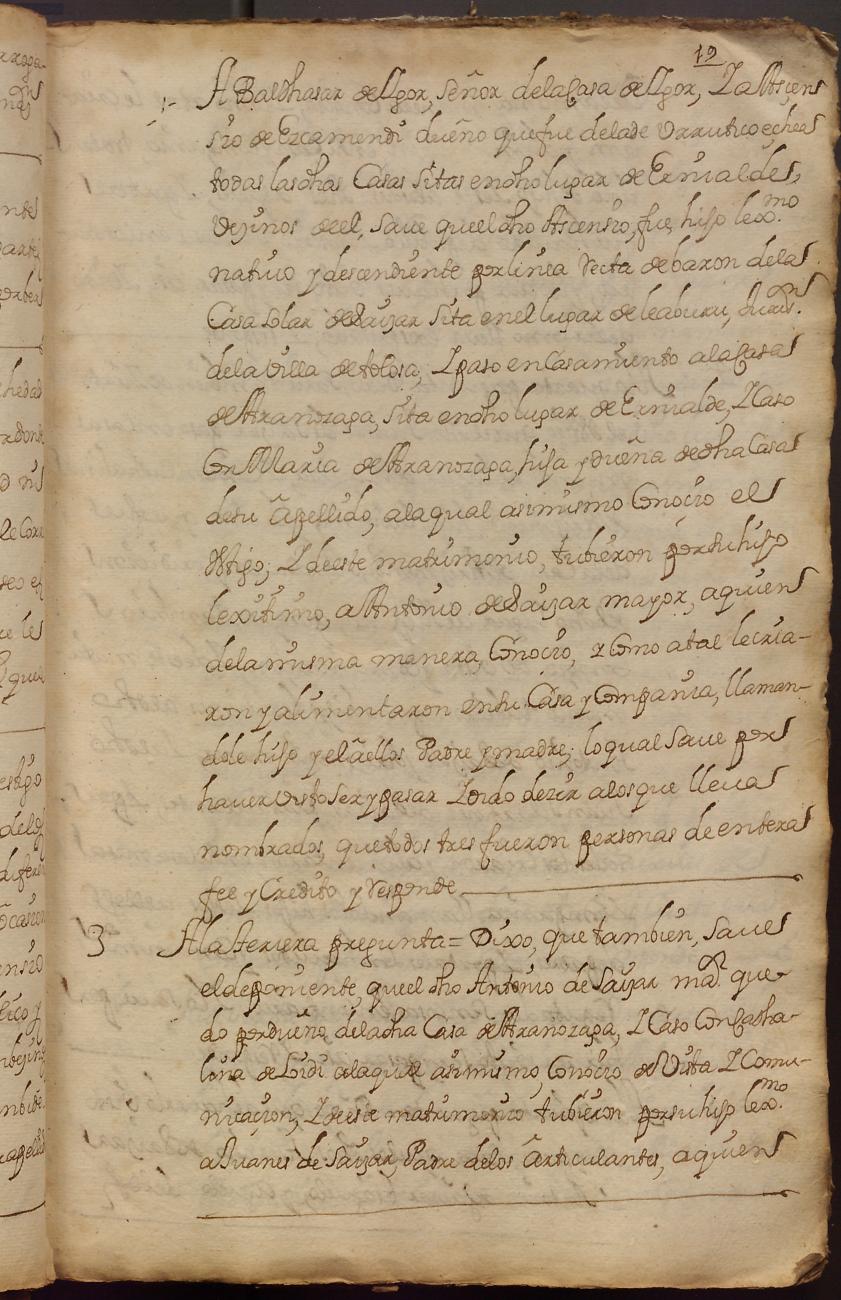 19
A Balthasar de Ugor, señor dela Casa de Ugor, Y a Ascen
sio de Ezcamendi dueño que fue delade Vrruticoechea
todas las dhas Casas sitas en dho lugar de Ernialde,
Vezinos de el, saue que el dho Ascensio, fue, hijo lexmo.
natiuo y descendiente por linea recta de baron dela
Casa solar de Saizar sita en el lugar de leaburu, Juris.on
dela Villa de tolosa, Y paso en Casamiento ala Casa
de Aranozaga, sita en dho lugar de Ernialde, Y Caso
Con Maria de Aranozaga, hija y dueña de dha Casa
de su apellido, ala qual asimismo Conocio el
testigo; Y de este matrimonio, tubieron por su hijo
lexitimo, a Antonio de Saizar mayor, a quien
dela misma manera, Conocio, y Como a tal le cria-
ron y alimentaron en su Casa y Compania, llaman-
dole hijo y el a ellos Padre y madre; lo qual saue por
hauer visto ser y pasar Y oido dezir alos que lleua
nombrados, que todos tres fueron personas de entera
fee y Credito y responde
3 A la terzera pregunta = Dixo, que tambien, saue
el deponiente, que el dho Antonio de Saizar mar. que-
do por dueño dela dha Casa de Aranozaga, Y Caso Con Catha-
lina de Loidi ala qual asimismo, Conocio de Vista Y Comu-
nicaçion, Y de este matrimonio tubieron por su hijo lexmo.
a Juanes de Saizar, Padre delos articulantes, a quien